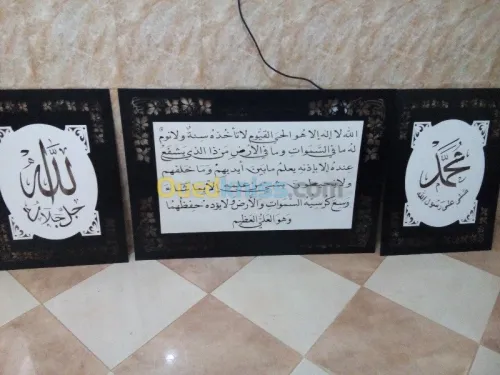 الله
جل جلاله
الله لا اله الا هو الحي القيوم لا تأخذه سنة ولا نوم
له ما في السموات وما في الأرض من ذا الذي يشفع
عنده إلا بإذنه يعلم ما بين أيديهم وما خلفهم
وسع كرسيه السموات والأرض ولا يؤده حفظهما
وهو العلي العظيم
محمد
صلى الله عليه وسلم
Ouedkniss.com